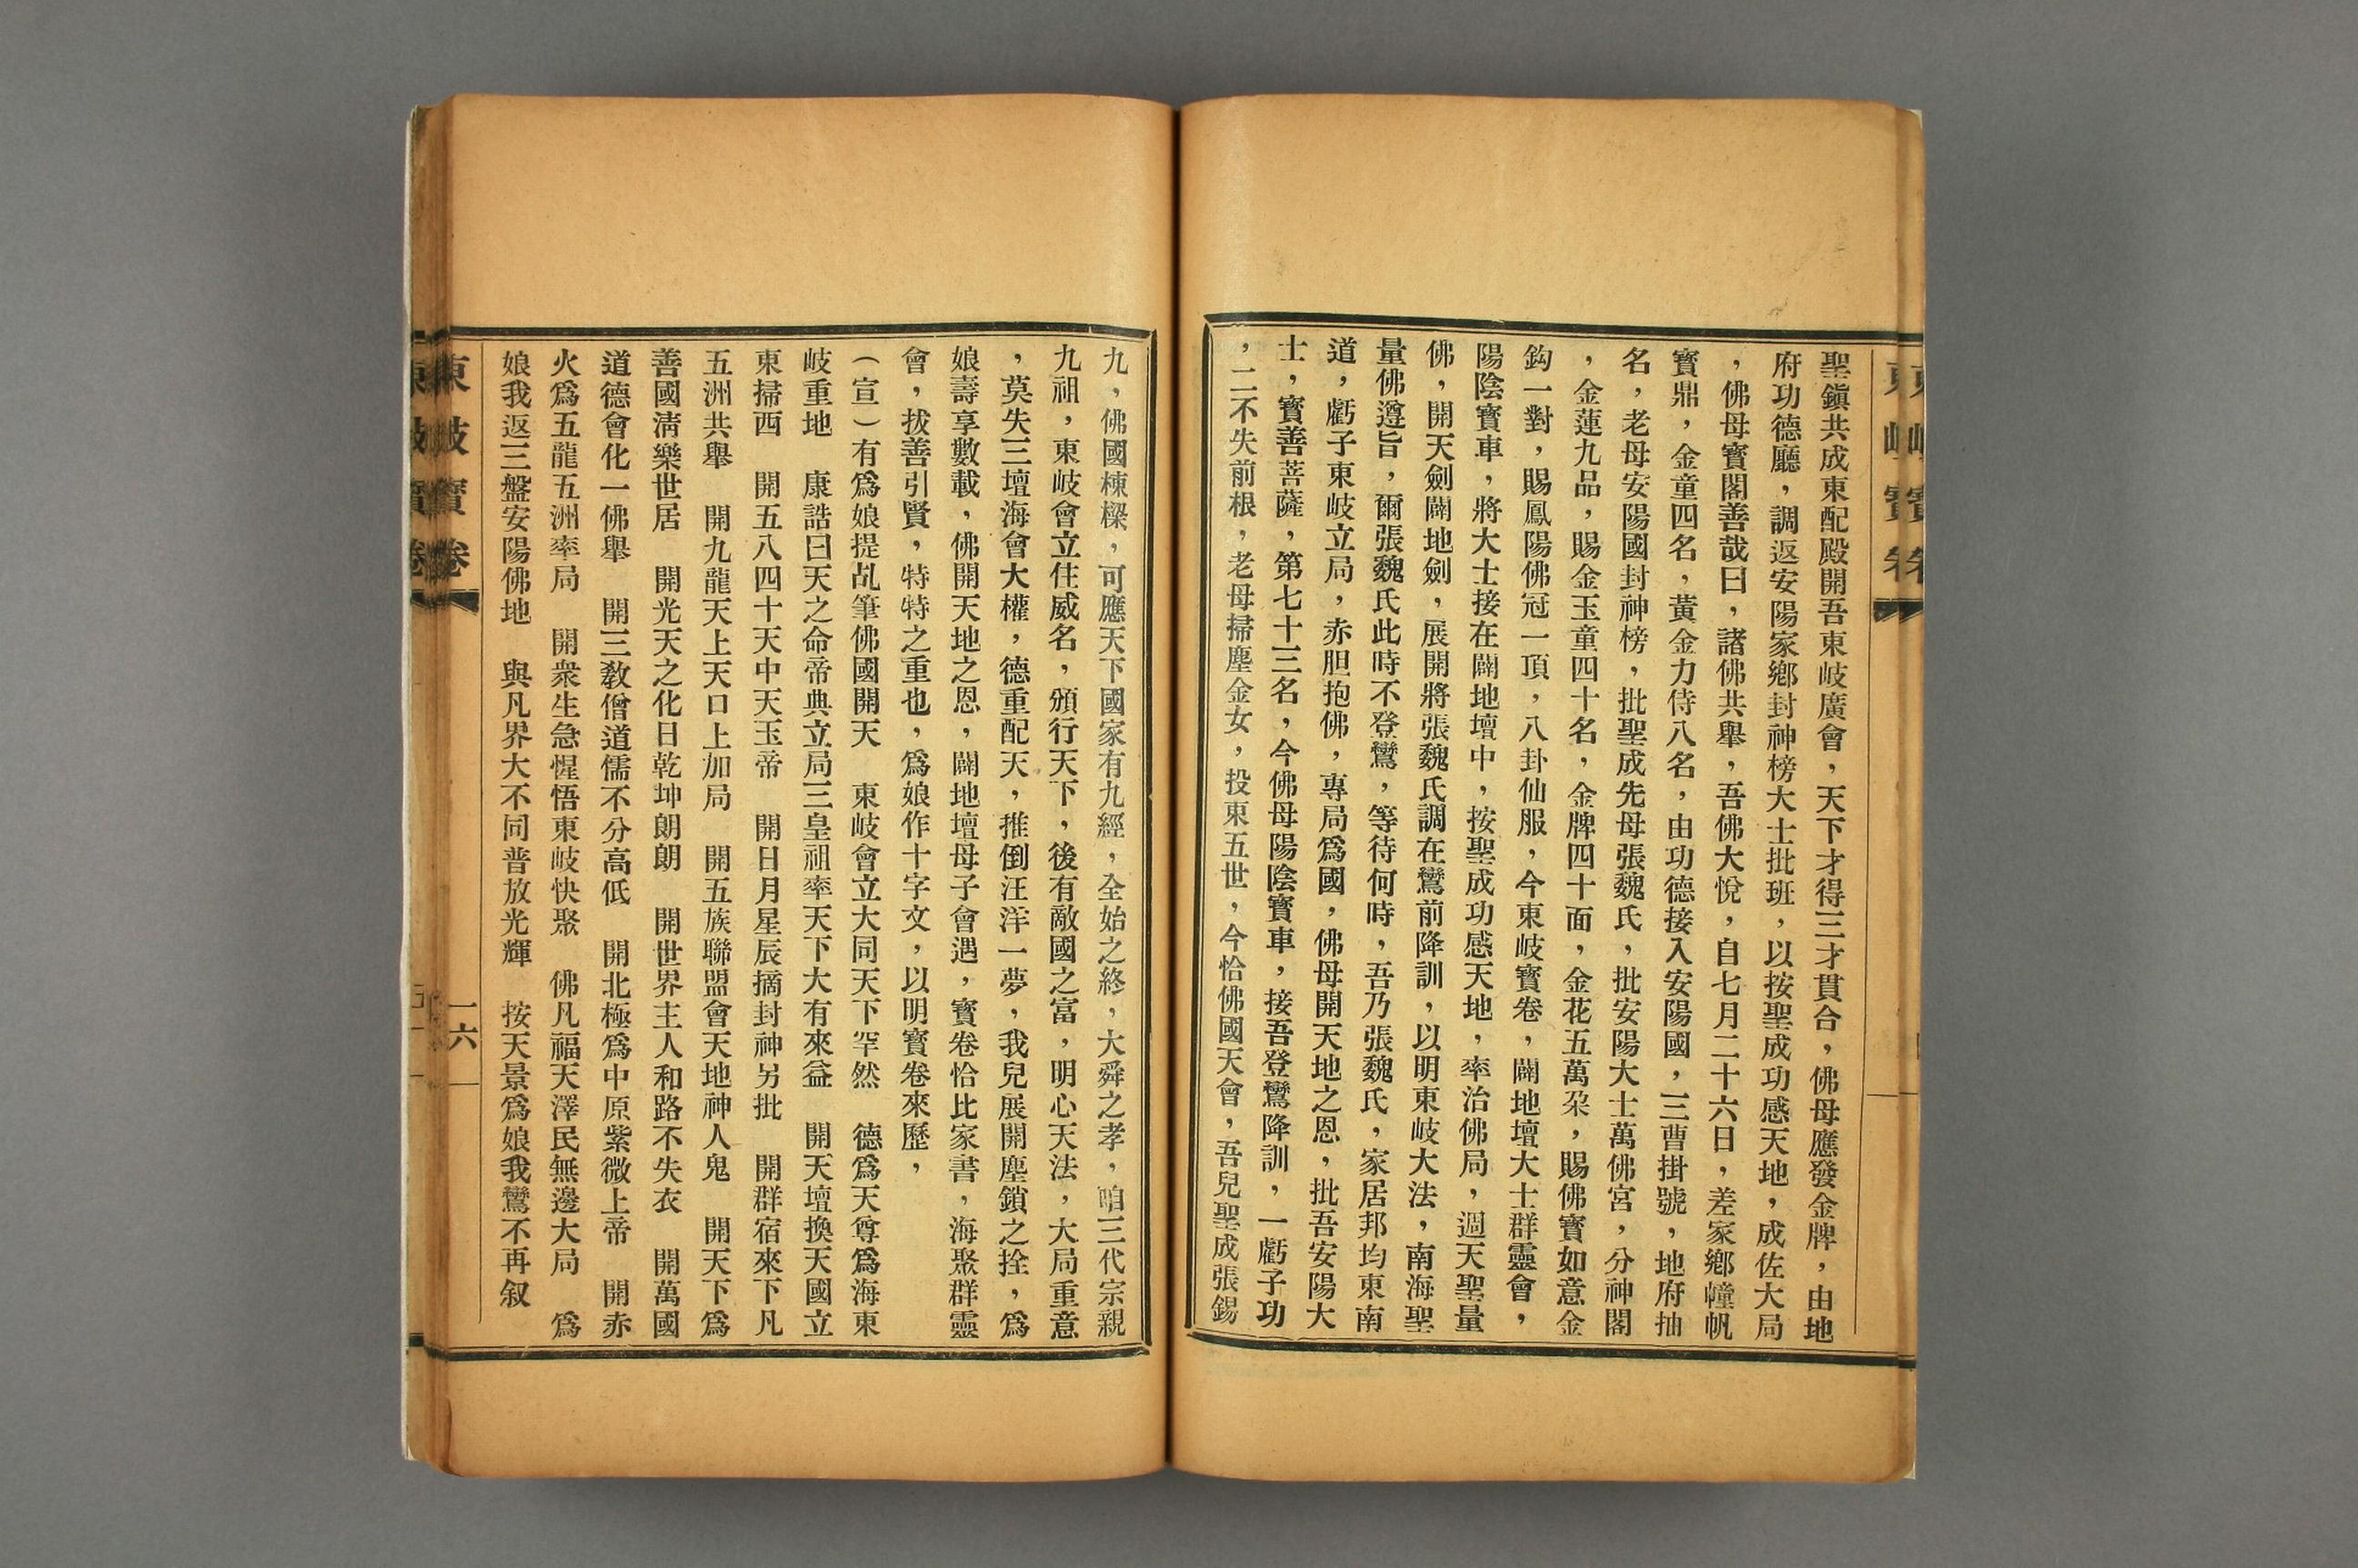 聖鎭共成東配殿開吾東岐廣會，天下才得三才貫合，佛母應發金牌，由地
府功德廳，調返安陽家鄉封神榜大士批班，以按聖成功感天地，成佐大局
，佛母寶閣善哉曰，諸佛共舉，吾佛大悅，自七月二十六日，差家鄉幢帆
寶鼎，金童四名，黃金力侍八名，由功德接入安陽國，三曹掛號，地府抽
名，老母安陽國封神榜，批聖成先母張魏氏，批安陽大士萬佛宮，分神閣
，金蓮九品，賜金玉童四十名，金牌四十面，金花五萬朶，賜佛寶如意金
鈎一對，賜鳳陽佛冠一頂，八卦仙服，今東岐寶卷，闢地壇大士群靈會，
陽陰寶車，將大士接在闢地壇中，按聖成功感天地，率治佛局，週天聖量
佛，開天劍闢地劍，展開將張魏氏調在鸞前降訓，以明東岐大法，南海聖
量佛遵旨，爾張魏氏此時不登鸞，等待何時，吾乃張魏氏，家居邦均東南
道，虧子東岐立局，赤胆抱佛，專局爲國，佛母開天地之恩，批吾安陽大
士，寶善菩薩，第七十三名，今佛母陽陰寶車，接吾登鸞降訓，一虧子功
，二不失前根，老母掃塵金女，投東五世，今恰佛國天會，吾兒聖成張錫
九，佛國棟樑，可應天下國家有九經，全始之終，大舜之孝，咱三代宗親
九祖，東岐會立住威名，頒行天下，後有敵國之富，明心天法，大局重意
，莫失三壇海會大權，德重配天，推倒汪洋一夢，我兒展開塵鎖之拴，爲
娘壽享數載，佛開天地之恩，闢地壇母子會遇，寶卷恰比家書，海聚群靈
會，拔善引賢，特特之重也，爲娘作十字文，以明寶卷來歷，
（宣）有爲娘提乩筆佛國開天　東岐會立大同天下罕然　德爲天尊爲海東
岐重地　康誥曰天之命帝典立局三皇祖率天下大有來益　開天壇換天國立
東掃西　開五八四十天中天玉帝　開日月星辰摘封神另批　開群宿來下凡
五洲共舉　開九龍天上天口上加局　開五族聯盟會天地神人鬼　開天下爲
善國淸樂世居　開光天之化日乾坤朗朗　開世界主人和路不失衣　開萬國
道德會化一佛舉　開三敎僧道儒不分高低　開北極爲中原紫微上帝　開赤
火爲五龍五洲率局　開衆生急惺悟東岐快聚　佛凡福天澤民無邊大局　爲
娘我返三盤安陽佛地　與凡界大不同普放光輝　按天景爲娘我鸞不再叙
東岐寶卷
一六